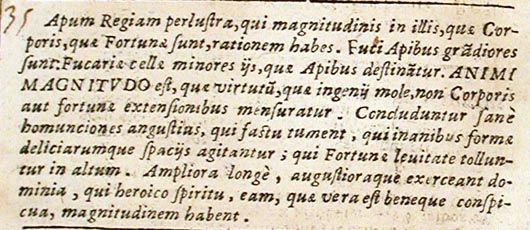 35
Apum Regiam perlustra, qui magnitudinis in illis, quæ Cor-
poris, quæ Fortunæ sunt, rationem habes. Fuci Apibus grãdiores
sunt: Fucariæ cellæ minores ijs, quæ Apibus destinãtur. ANIMI
MAGNITVDO est, quæ virtutũ, quæ ingenij mole, non Corporis
aut fortunæ extensionibus mensuratur. Concluduntur sanè
homunciones angustias, qui fastu tument, qui inanibus formæ
deliciarumque spacijs agitantur; qui Fortunæ leuitate tollun-
tur in altum. Ampliora longè, augustioraque exerceant do-
minia, qui heroico spiritu, eam, quæ vera est beneque conspi-
cua, magnitudinem habent.